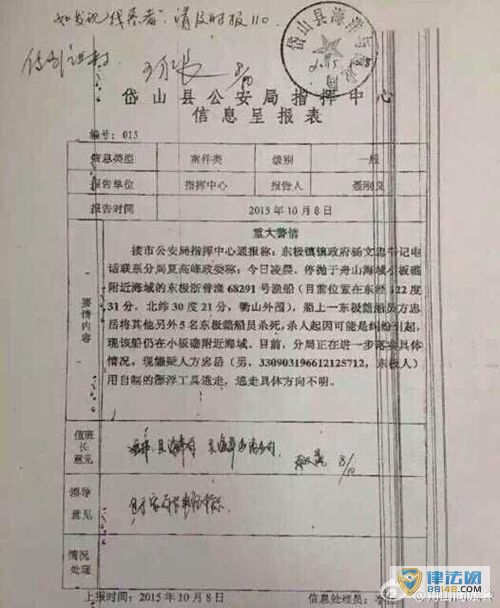 如发现线索者，请及时报110
8/10
岱山县海洋与
岱山县公安局指挥中心
信息呈报表
编号：015
信息类型 案件类 级别 一般
报告单位 指挥中心 报告人
报告时间 2015年10月8日
要情内容
重大警情
接市公安局指挥中心通报称：东极镇镇政府杨文忠书记电
话联系分局夏高峰政委称：今日凌晨，停抛于舟山海域小板礁
附近海域的东极浙普渔68291号渔船（目前位置在东经122度
31分，北纬30度21分，衢山外围），船上一东极籍船员方忠
岳将其他另外5名东极籍船员杀死，杀人起因可能是纠纷引起，
现该船仍在小板礁附近海域。目前，分局正在进一步落实具体
情况，现嫌疑人方忠岳（男，330903196612125712，东极人）
用自制的漂浮工具逃走，逃走具体方向不明。
值班长意见
8/10
领导意见
情况处理
上报时间：2015年10月8日 信息处理员：
律法网
88148.com